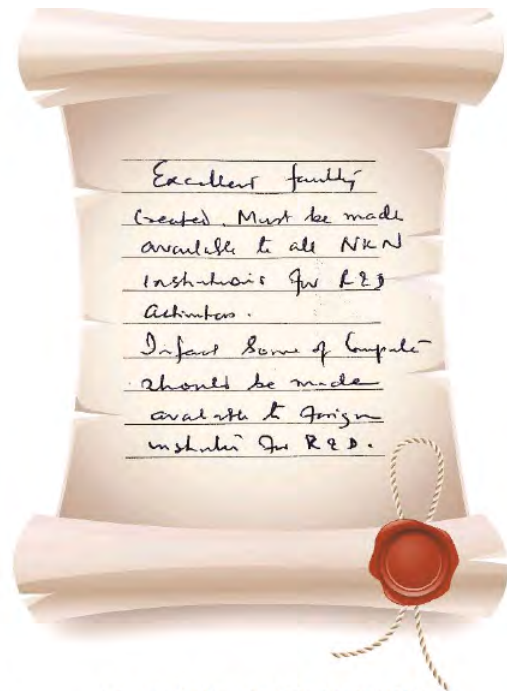 Excellent facility
Created. Must be made
available to all NKN
Institutions for R&D
activities.
Infact Some of Compute
should be made
available to foreign
institutes for R&D.